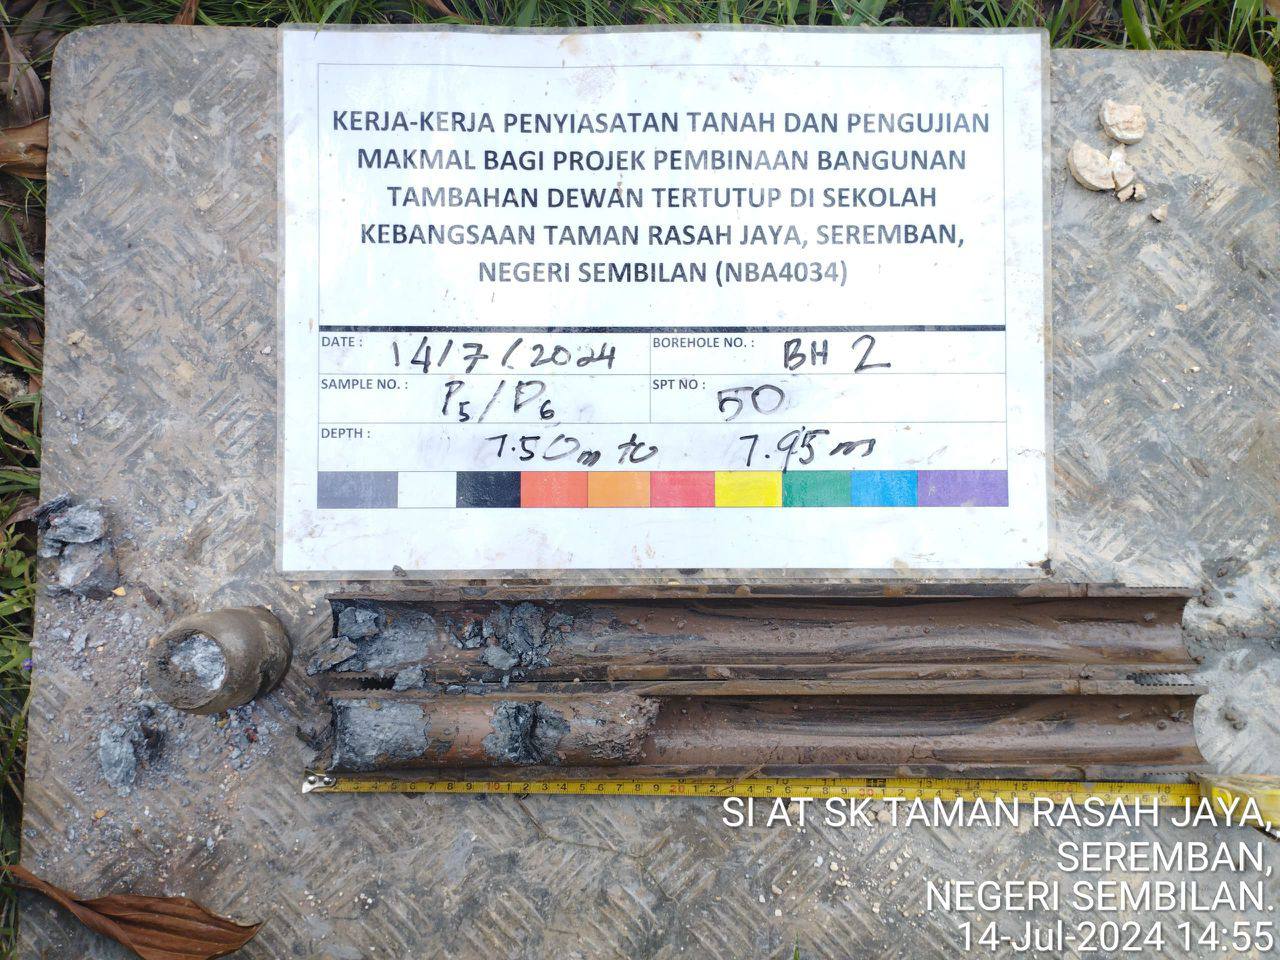 KERJA-KERJA PENYIASATAN TANAH DAN PENGUJIAN
MAKMAL BAGI PROJEK PEMBINAAN BANGUNAN
TAMBAHAN DEWAN TERTUTUP DI SEKOLAH
KEBANGSAAN TAMAN RASAH JAYA, SEREMBAN,
NEGERI SEMBILAN (NBA4034)
DATE : 14/7/2024 BOREHOLE NO. : BH 2
SAMPLE NO. : P5/D6 SPT NO : 50
DEPTH : 7.50m to 7.95m
SI AT SK TAMAN RASAH JAYA,
SEREMBAN,
NEGERI SEMBILAN.
14-Jul-2024 14:55